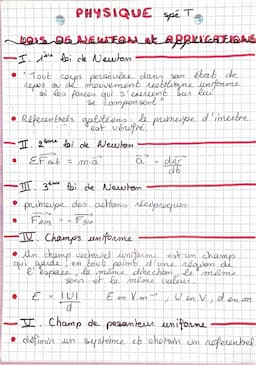 PHYSIQUE spé T
LOIS DE NEWTON et APPLICATIONS
I. 1ère loi de Newton
• "Tout corps persévère dans son état de
repos ou de mouvement rectiligne uniforme
si les forces qui s'exercent sur lui
se compensent"
• Référentiels galiléens : le principe d'inertie
est vérifié.
II. 2ème loi de Newton
• ΣFext = m·a a = dv/dt
III. 3ème loi de Newton
• principe des actions réciproques
•
IV. Champs uniforme
• Un champ vectoriel uniforme est un champ
qui garde, en tout point d'une région de
l'espace, la même direction, le même
sens et la même valeur.
• E = |U|/d E en V.m⁻¹, U en V, d en m
V. Champ de pesanteur uniforme
• définir un système et choisir un référentiel